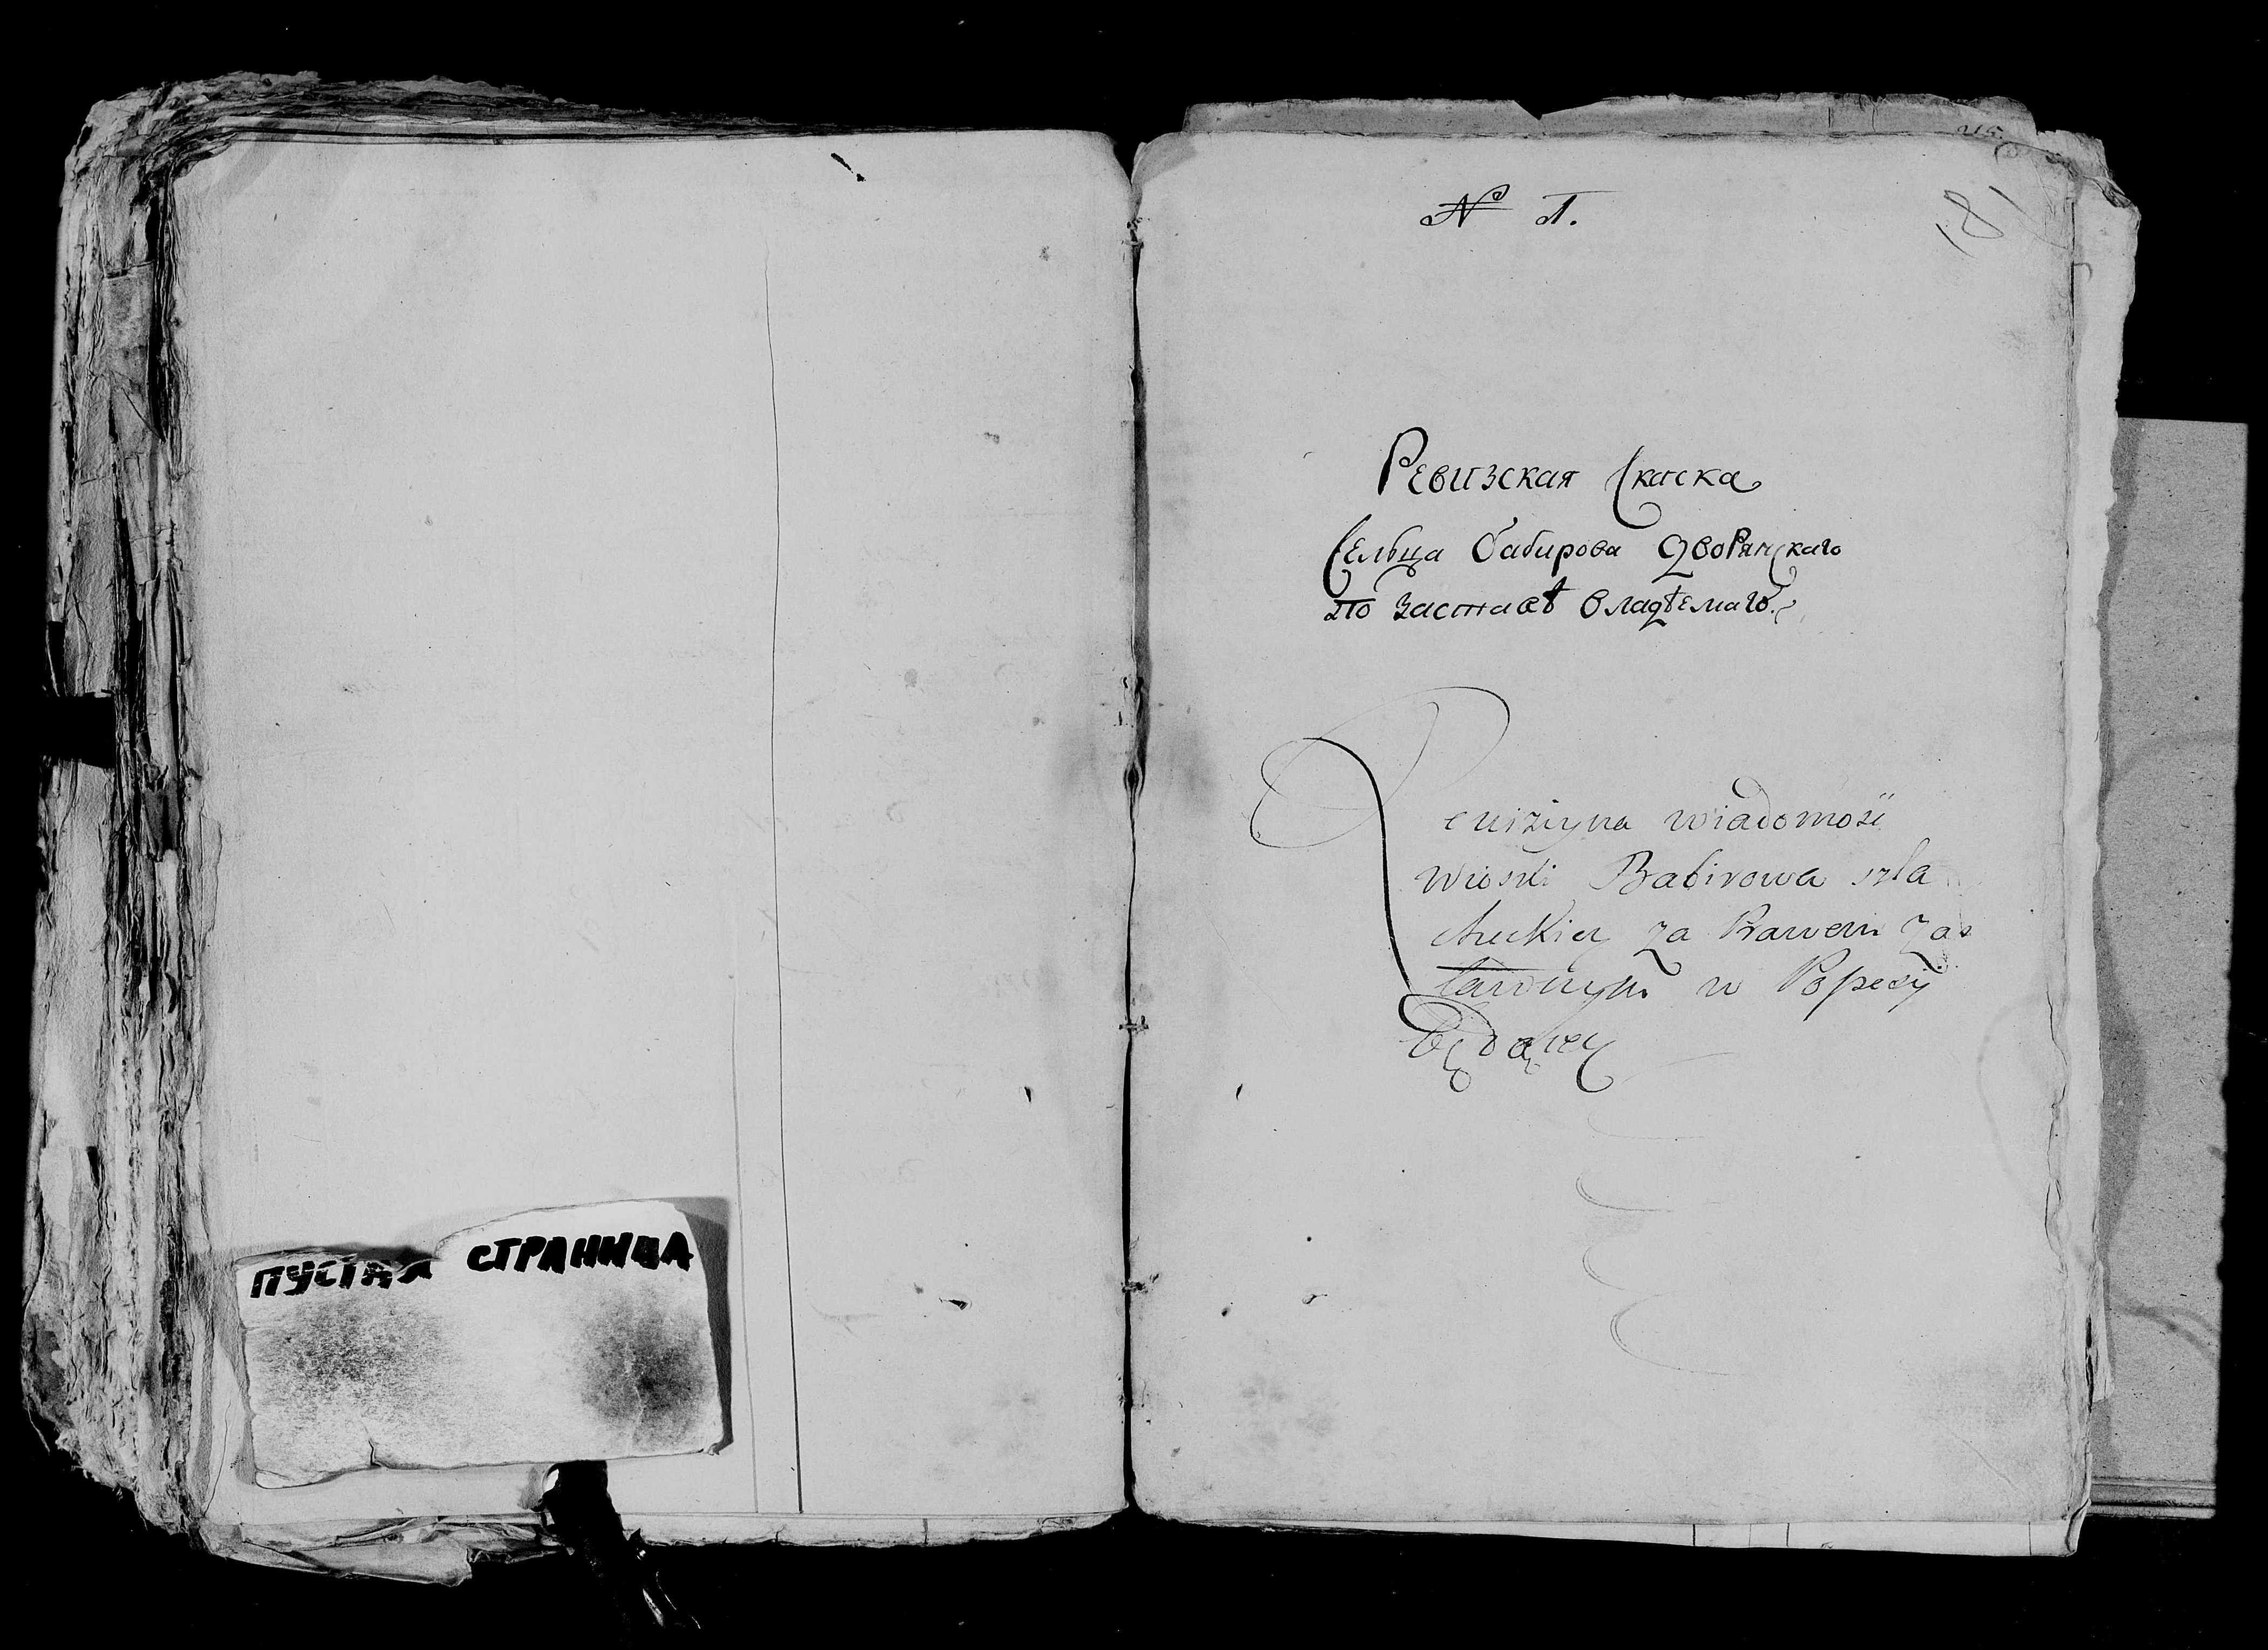 ПУСТАЯ СТРАНИЦА
№ 1.
181
Ревизская Скаска
Сельца бабирова Дворянскаго
по заставѣ владѣемаго
Rewizyina wiadomość
wioski Babirowa szla
checkiey za Prawem zas
tawnym w Posesyi
będącey